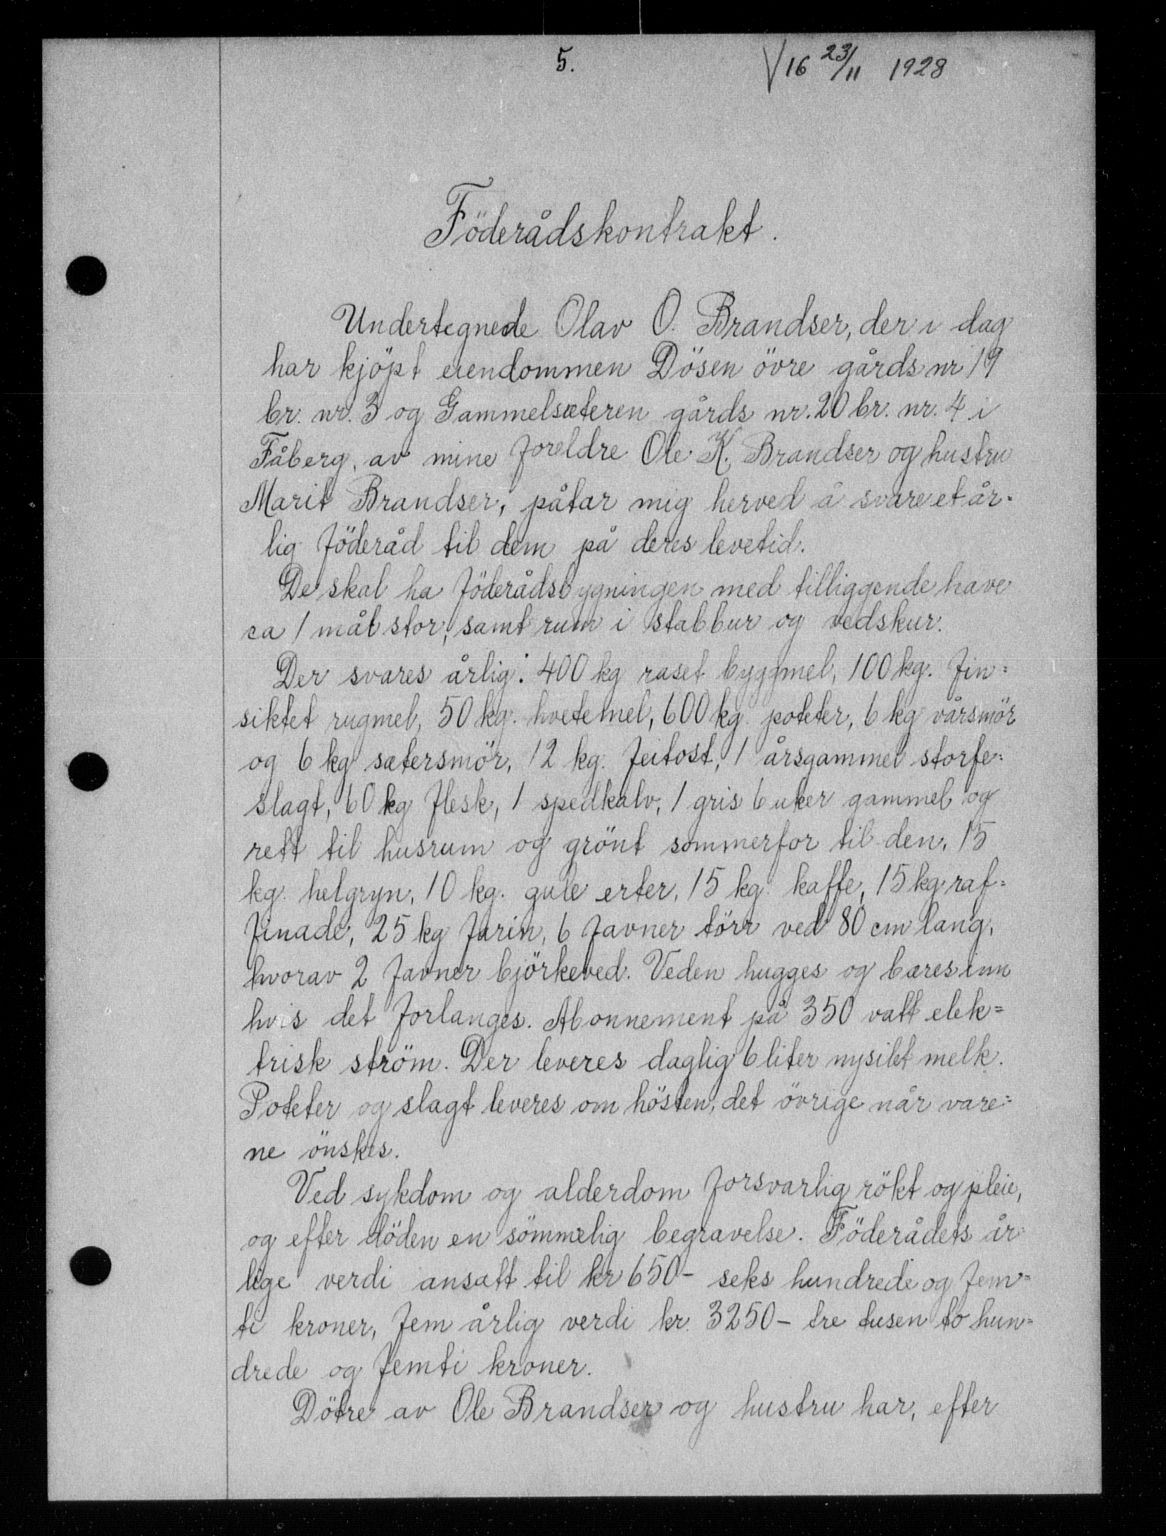 5.
√16 23/11 1928
Föderådskontrakt.
Undertegnede Olav O. Brandser, der i dag
har kjöpt eiendommen Dösen övre gårds nr 19
br. nr. 3 og Gammelsæteren gårds nr. 20 br. nr. 4 i
Fåberg, av mine foreldre Ole K. Brandser og hustru
Marit Brandser, påtar mig herved å svare et år-
lig föderåd til dem på deres levetid.
De skal ha föderådsbygningen med tilliggende have
ca 1 mål stor, samt rum i stabbur og vedskur.
Der svares årlig: 400 kg raset byggmel, 100 kg. fin=
siktet rugmel, 50 kg. hvetemel, 600 kg. poteter, 6 kg vårsmör
og 6 kg sætersmör, 12 kg. feitost, 1 årsgammel storfe=
slagt, 60 kg flesk, 1 spedkalv, 1 gris 6 uker gammel og
rett til husrum og grönt sommerfor til den, 15
kg. helgryn, 10 kg. gule erter, 15 kg. kaffe, 15 kg raf=
finade, 25 kg farin, 6 favner törr ved 80 cm lang,
hvorav 2 favner björkeved. Veden hugges og bæres inn
hvis det forlanges. Abonnement på 350 vatt elek=
trisk ström. Der leveres daglig 6 liter nysilet melk.
Poteter og slagt leveres om hösten, det övrige når vare=
ne önskes.
Ved sykdom og alderdom forsvarlig rökt og pleie,
og efter döden en sömmelig begravelse. Föderådets år
lige verdi ansatt til kr 650- seks hundrede og fem=
ti kroner, fem årlig verdi kr. 3250- tre tusen to hun=
drede og femti kroner.
Dötre av Ole Brandser og hustru har, efter